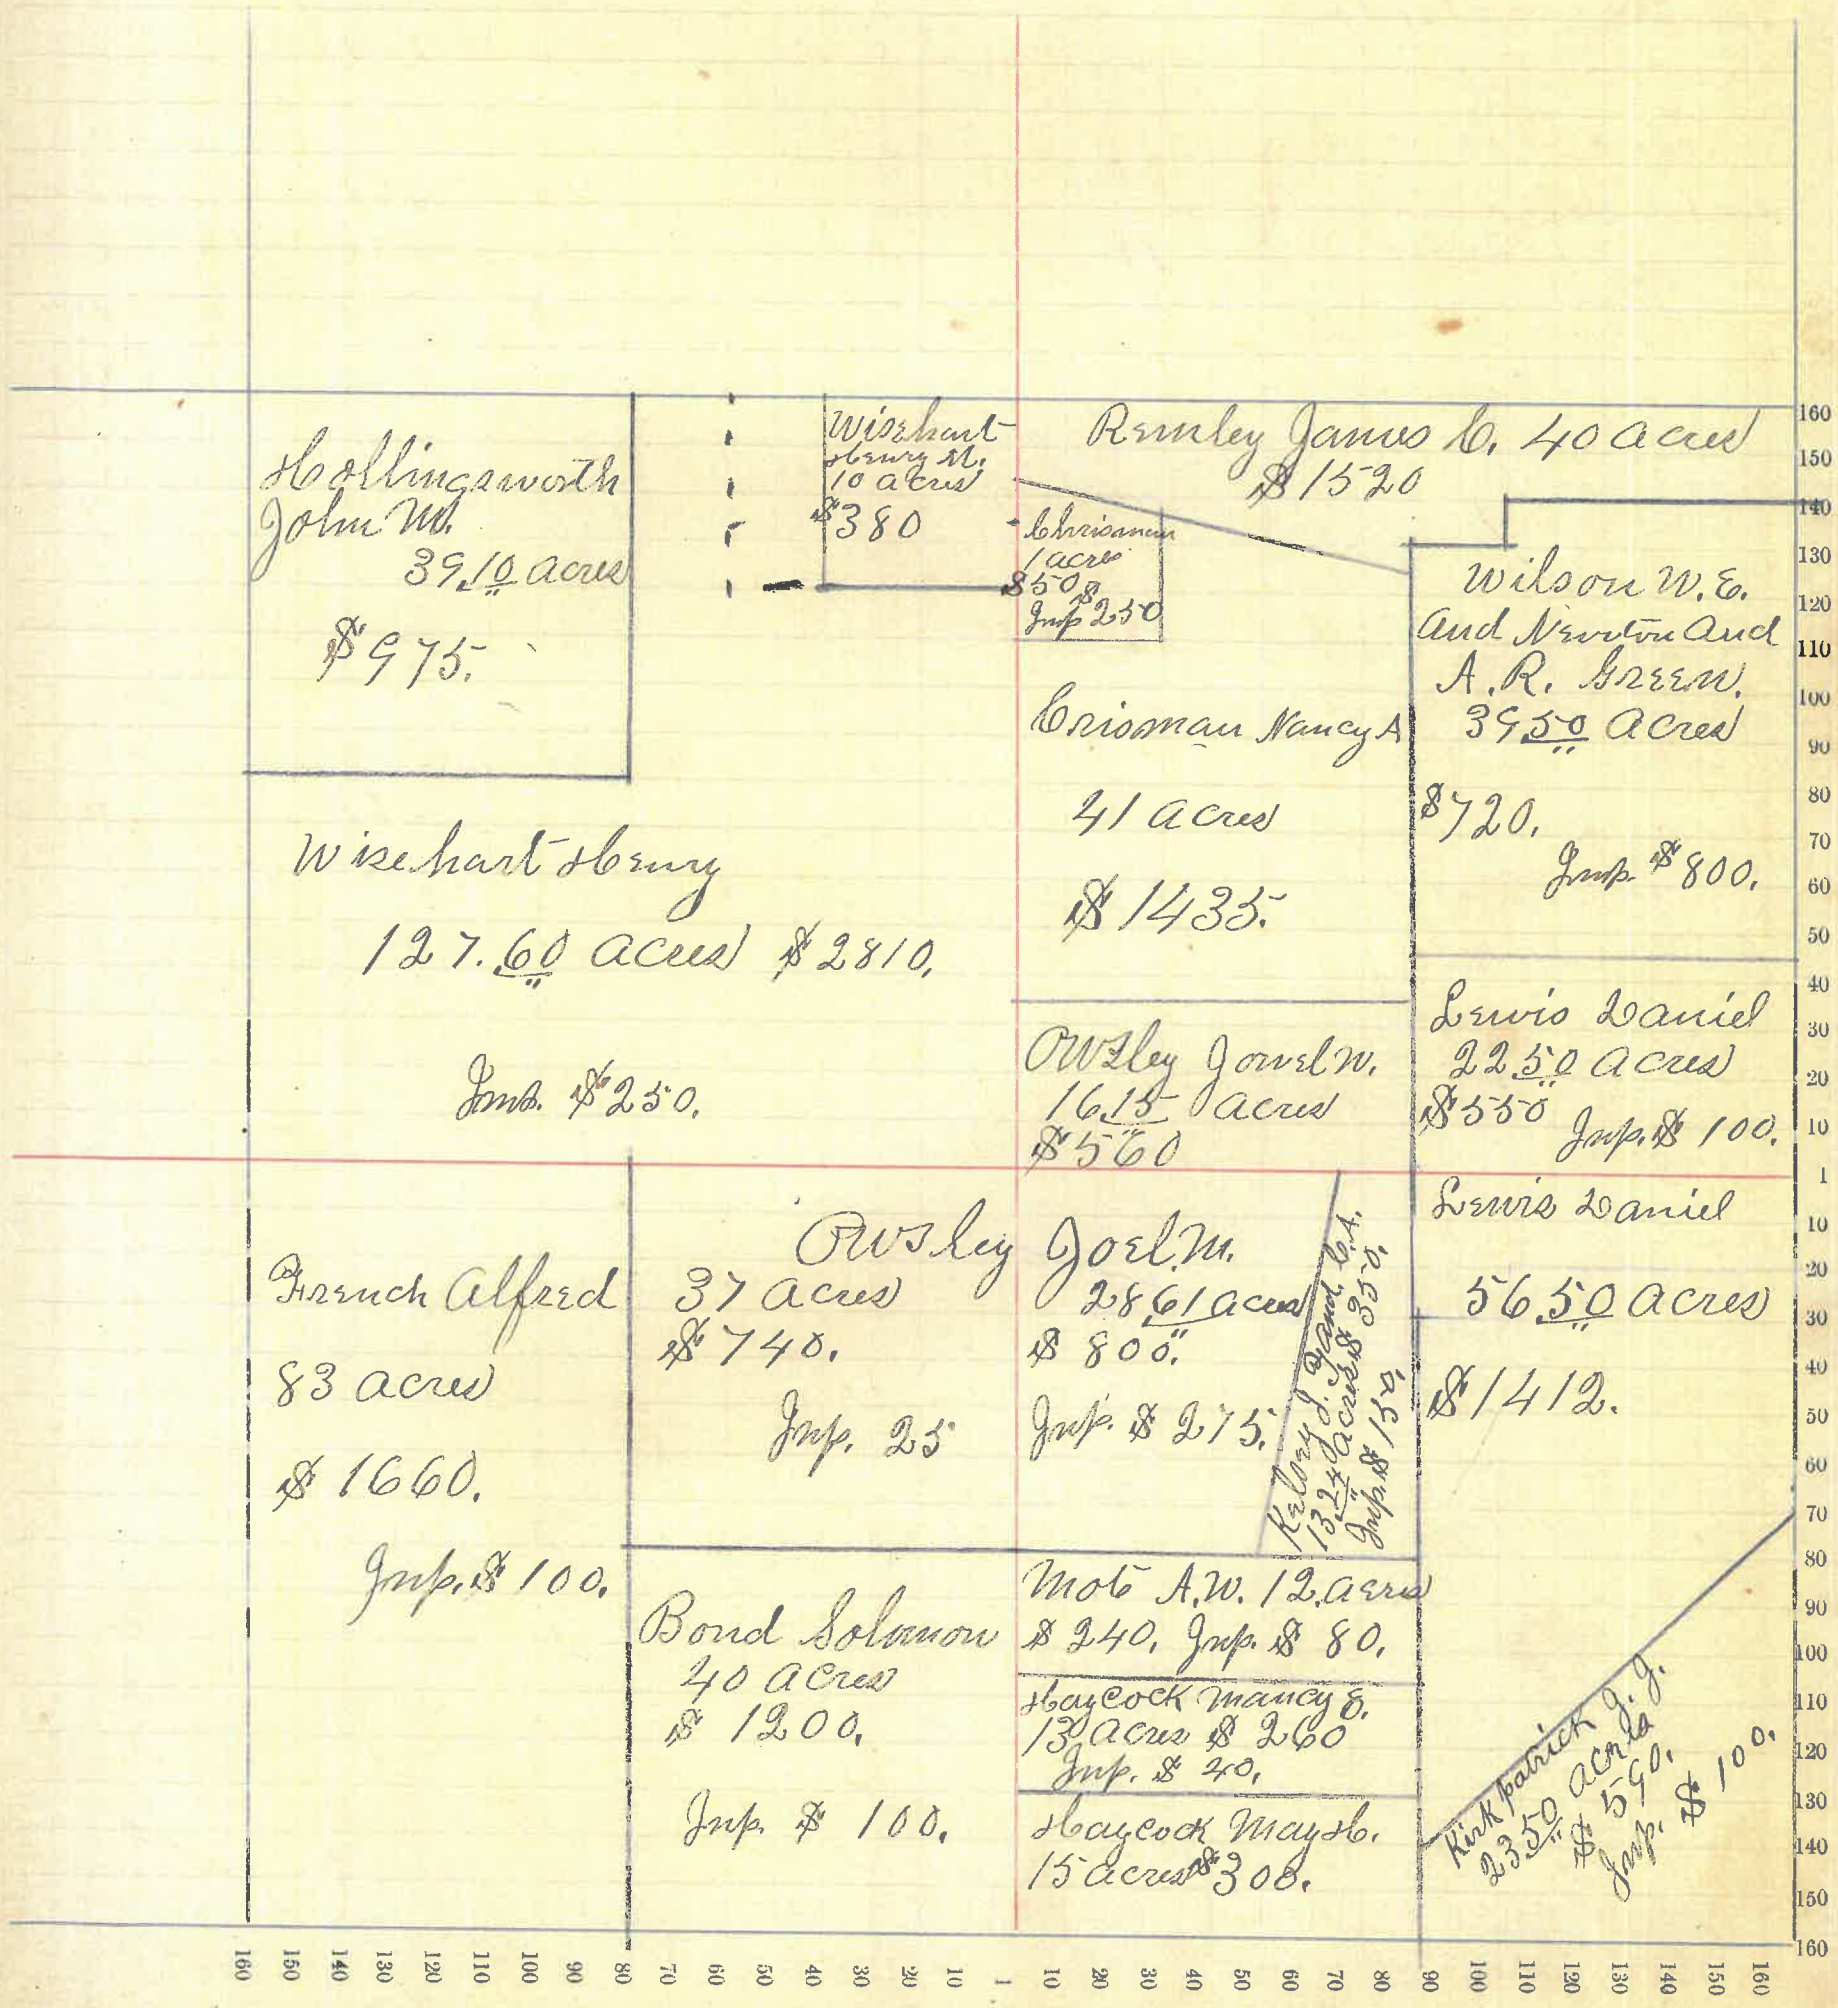 Hollingsworth
John M.
39.10 acres
$975.
Wisehart
Henry M.
10 acres
$380
Remley James C. 40 acres
$1520
Chrisman
1 acres
$50
Imp $250
Wilson W.E.
and Newton and
A.R. Green.
39.50 Acres
$720.
Imp. $800.
Crisman Nancy A
41 acres
$1435.
Wisehart Henry
127.60 acres $2810.
Imp. $250.
Owsley Jowel W.
16.15 acres
$560
Lewis Daniel
22.50 acres
$550
Imp. $100.
French Alfred
83 acres
$1660.
Imp. $100.
Owsley Joel. M.
37 acres
$740.
Imp. 25
28.61 acres
$800.
Imp. $275.
Kelsey L. T. and C.A.
13.24 acres $350.
Imp. $150.
Lewis Daniel
56.50 acres
$1412.
Bond Solomon
40 acres
$1200.
Imp $100.
Mote A.W. 12 acres
$240. Imp. $80.
Haycock Mancy E.
13 acres $260
Imp. $40.
Haycock May H.
15 acres $300.
Kirkpatrick J. J.
23.50 acres
$590.
Imp. $100.
160
150
140
130
120
110
100
90
80
70
60
50
40
30
20
10
1
10
20
30
40
50
60
70
80
90
100
110
120
130
140
150
160
160 150 140 130 120 110 100 90 80 70 60 50 40 30 20 10 1 10 20 30 40 50 60 70 80 90 100 110 120 130 140 150 160